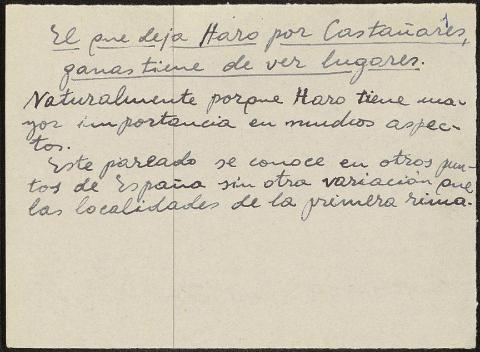 El que deja Haro por Castañares,
ganas tiene de ver lugares.
Naturalmente porque Haro tiene ma-
yor importancia en muchos aspec-
tos.
Este pareado se conoce en otros pun-
tos de España sin otra variación que
las localidades de la primera rima.